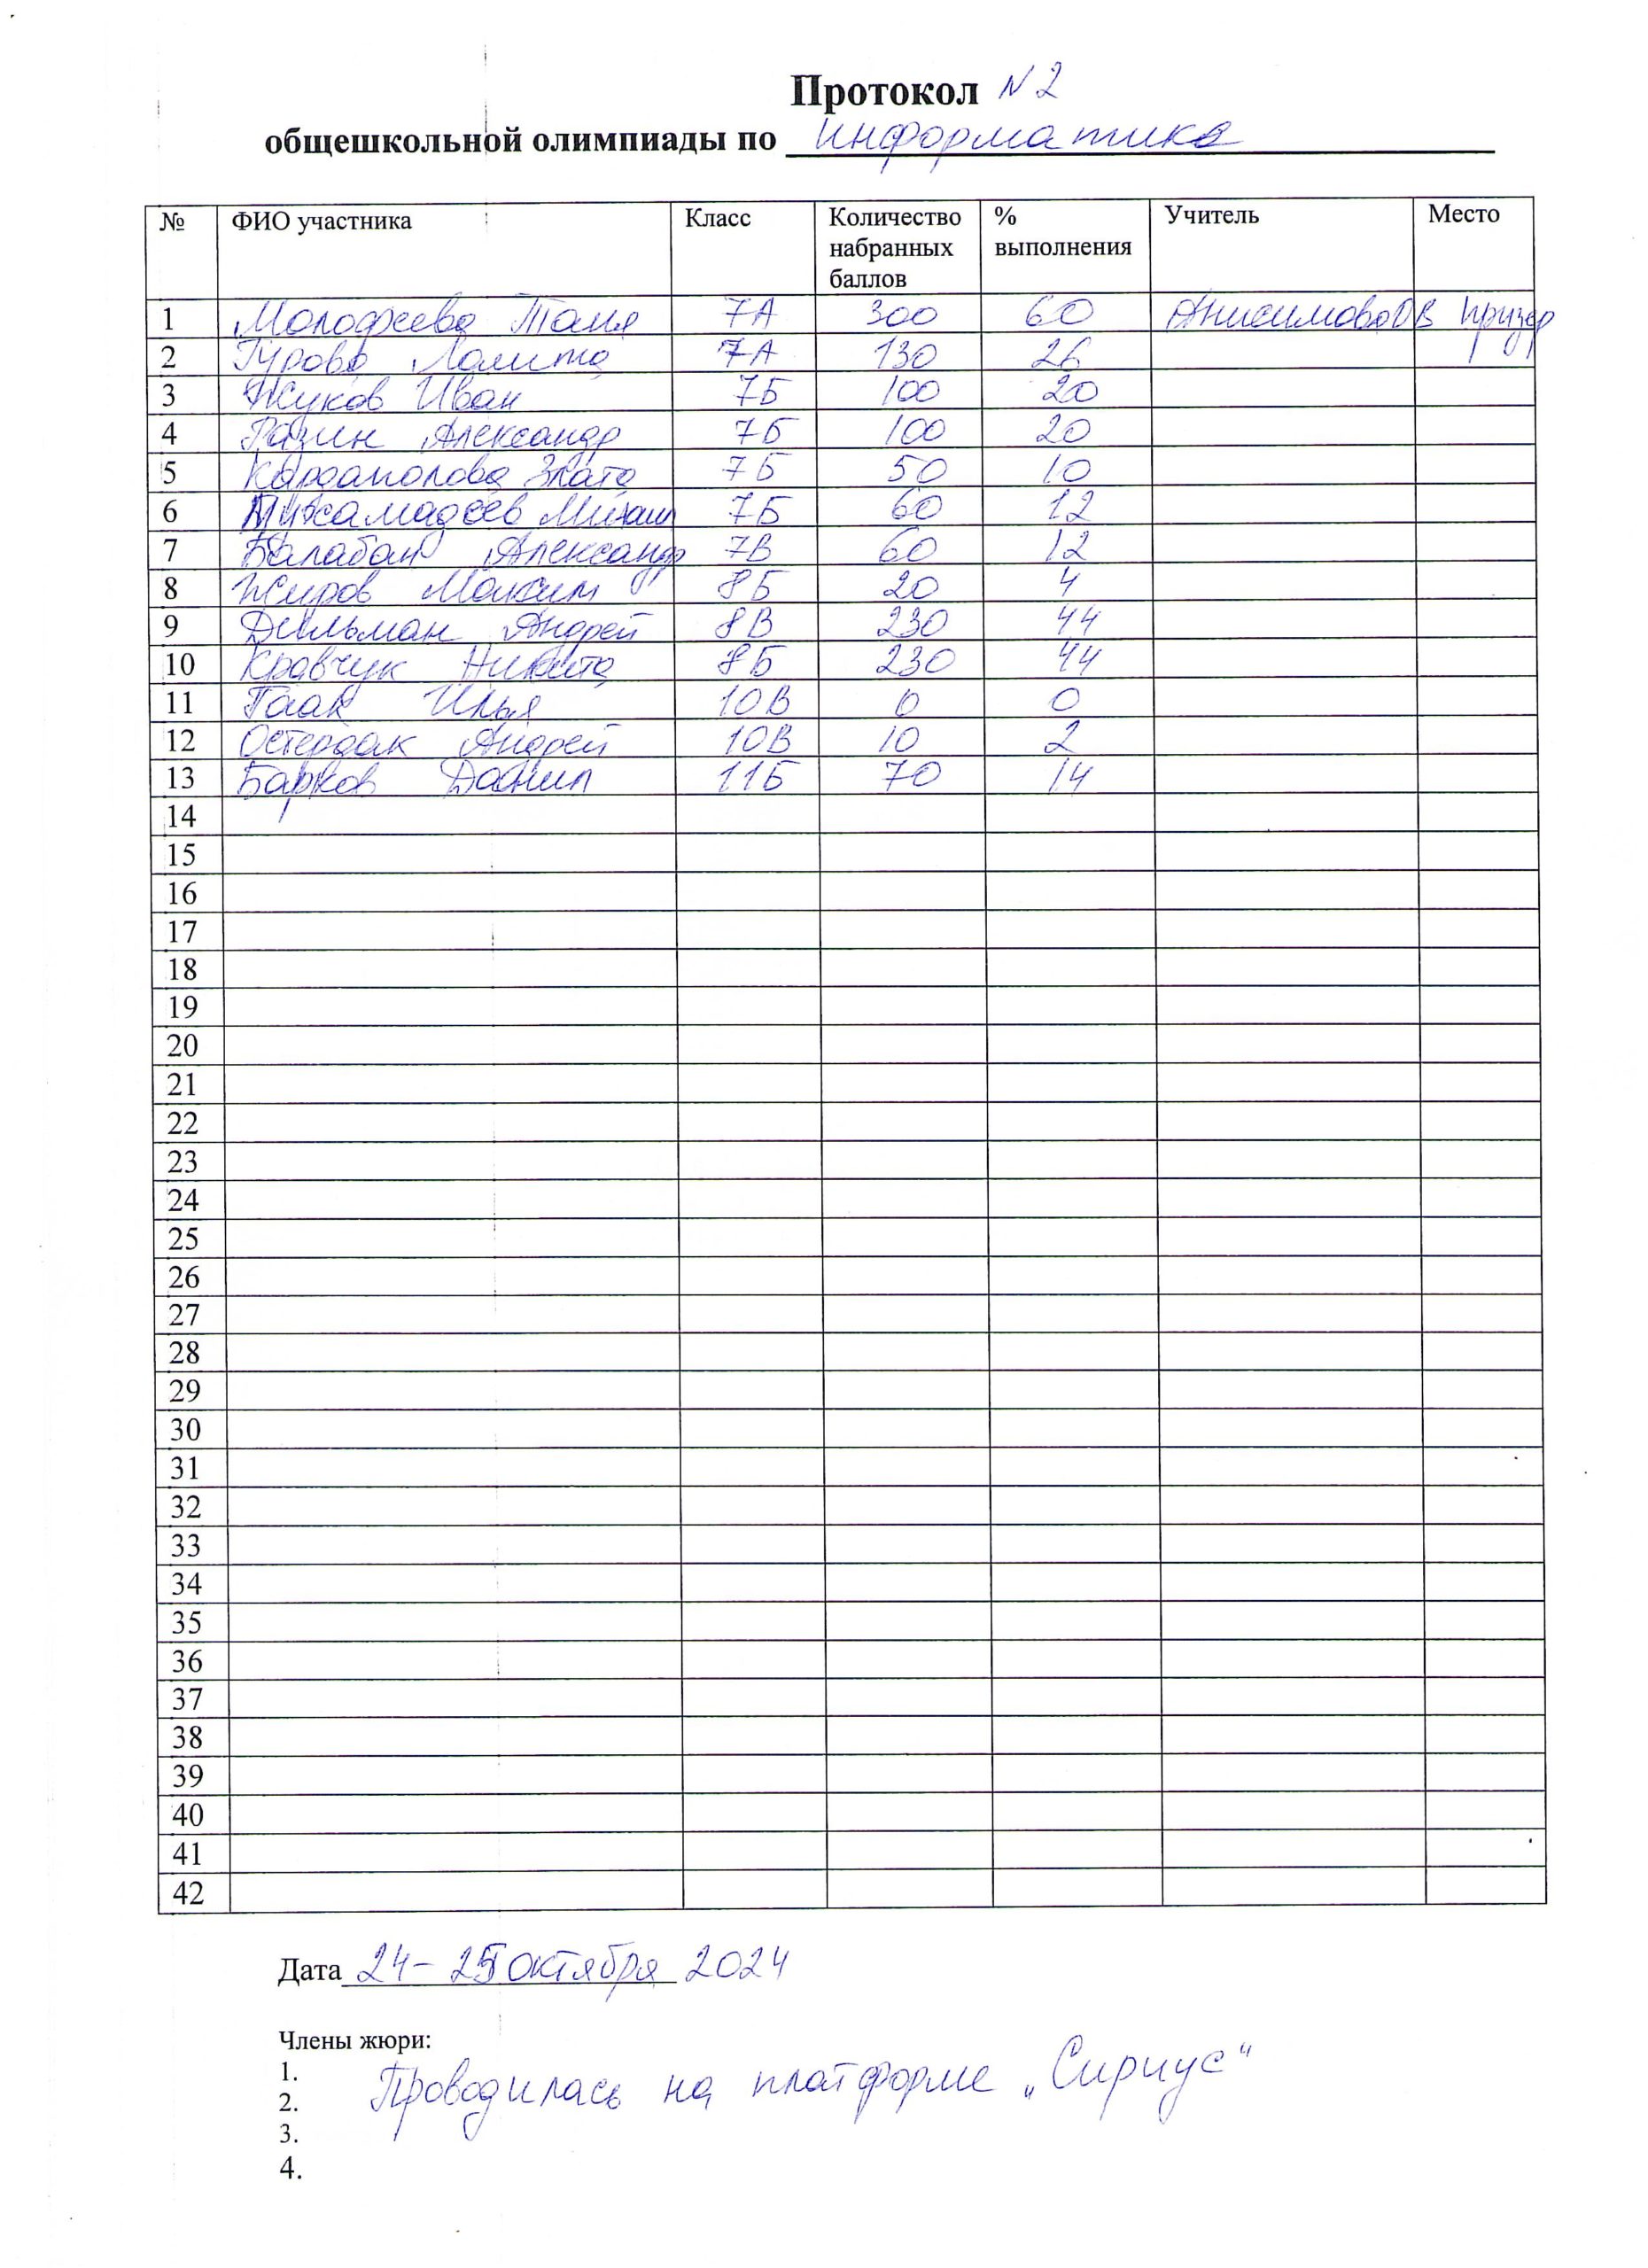 Протокол N 2
общешкольной олимпиады по Информатика
№ ФИО участника Класс Количество набранных баллов % выполнения Учитель Место
1 Молофеева Таня 7А 300 60 Анисимова ОВ призер
2 Гурова Лолита 7А 130 26
3 Жуков Иван 7Б 100 20
4 Разин Александр 7Б 100 20
5 Кардаполова Злата 7Б 50 10
6 Мухамадеев Михаил 7Б 60 12
7 Балабан Александр 7В 60 12
8 Жиров Максим 8Б 20 4
9 Дильман Андрей 8В 230 44
10 Кравчук Никита 8Б 230 44
11 Гаак Илья 10В 0 0
12 Андрей 10В 10 2
13 Барков Данил 11Б 70 14
14
15
16
17
18
19
20
21
22
23
24
25
26
27
28
29
30
31
32
33
34
35
36
37
38
39
40
41
42
Дата 24-25 октября 2024
Члены жюри:
1.
Проводилась на платформе „Сириус“
2.
3.
4.